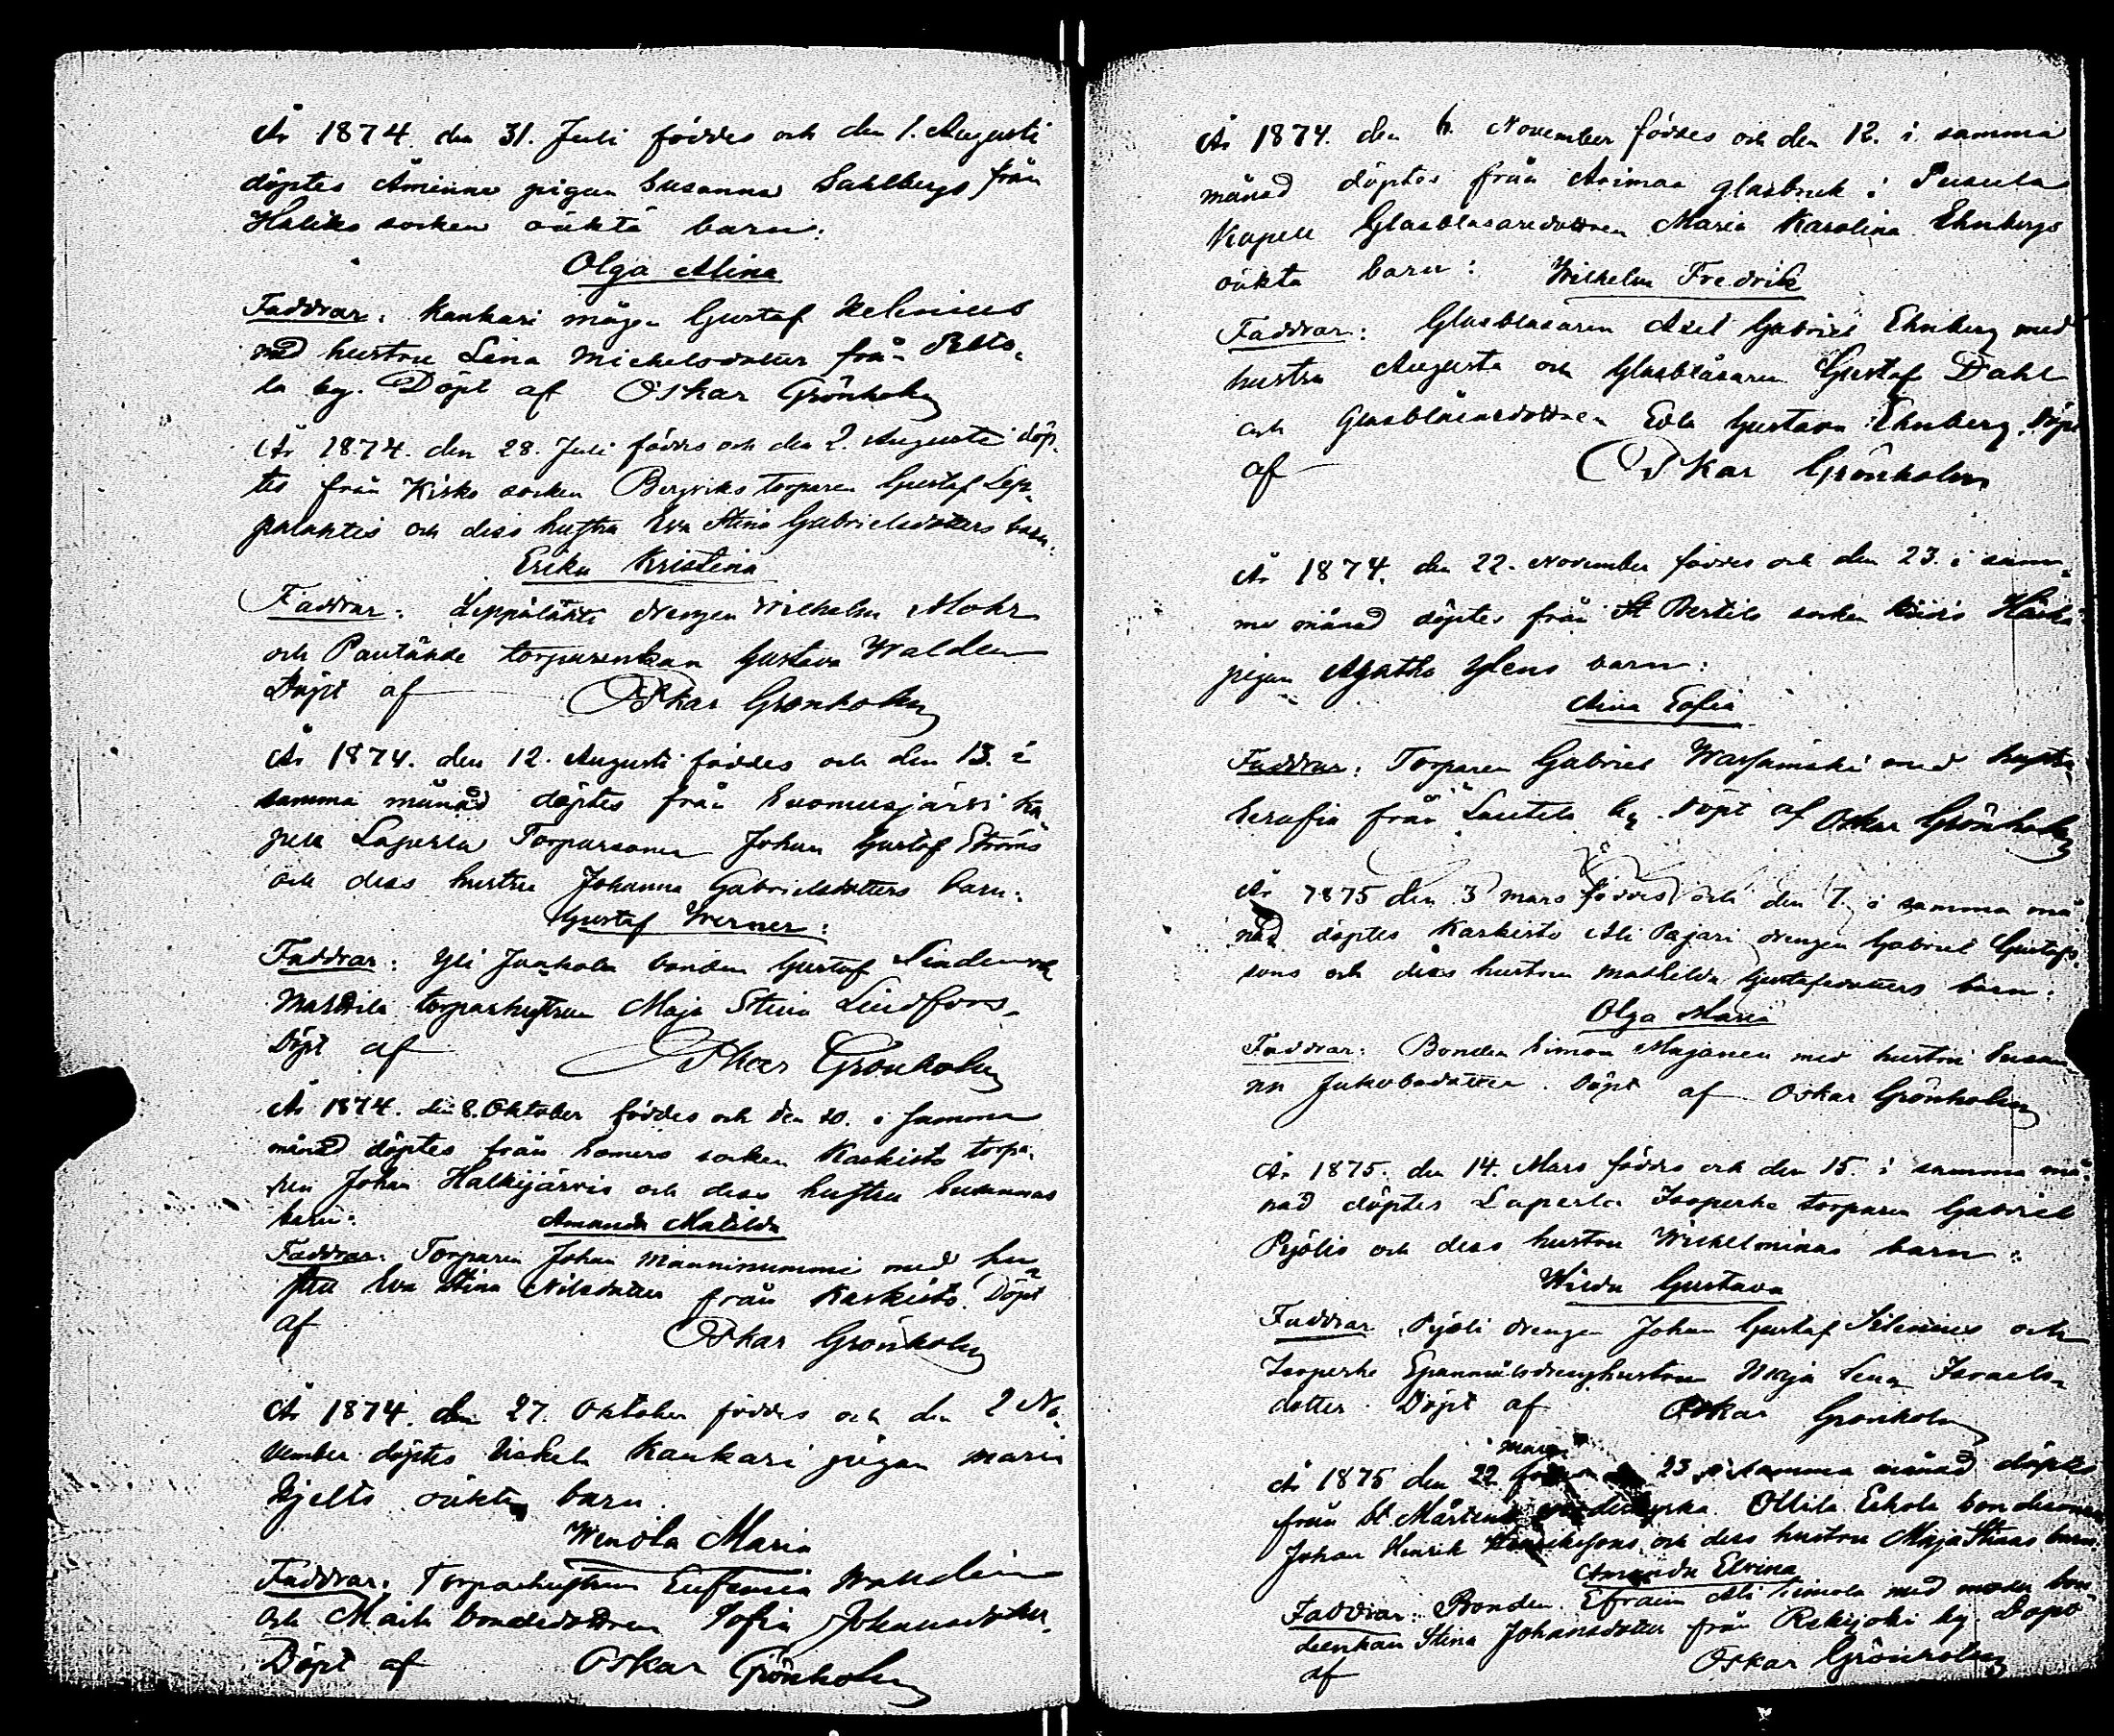 År 1874. den 31. Juli föddes och den 1. Augusti
döptes Åminne pigan Susanna Sahlbergs från
Haliko socken oäkta barn:
Olga Alina
Faddrar: Kankari mågen Gustaf Helenius
med hustru Lena Michelsdotter från Rekto-
la by. Döpt af Oskar Grönholm
År 1874. den 28. Juli föddes och den 2. Augusti döp-
tes från Kisko socken Bergviks torparen Gustaf Lep-
pälahtis och dess hustru Eva Stina Gabrielsdotters barn:
Erika Kristina
Faddrar: Leppälahti drengen Wilhelm Mohr
och torparenkan Gustava Walden
Döpt af Oskar Grönholm
År 1874. den 12. Augusti föddes och den 13. i
samma månad döptes från Suomusjärvi Ka-
pell Laperla Torparsonen Johan Gustaf Ströms
och dess hustru Johanna Gabrielsdotters barn:
Gustaf Werner:
Faddrar: Yli Juakola bonden Gustaf Linden och
torparhustrun Maja Stina Lindfors.
Döpt af Oskar Grönholm
År 1874. den 8. Oktober föddes och den 10. i samma
månad döptes från Somero socken Kaskisto torpa-
ren Johan Halkijärvis och dess hustru Susannas
barn: Amanda Matilda
Faddrar: Torparen Johan Manninummi med hu-
stru Eva Stina Nilsdotter från Kaskisto. Döpt
af Oskar Grönholm
År 1874. den 27. Oktober föddes och den 2 No-
vember döptes Kankari pigan Maria
Hjelts oäkta barn
Wendla Maria
Faddrar: Torparhustrun Eufemia Wahlin
och bondedottren Sofia Johansdotter.
Döpt af Oskar Grönholm
År 1874. den 6. November föddes och den 12. i samma
månad döptes från Avimaa glasbruk i Pusula
Kapell Glasblåsaredottren Maria Karolina Ehnbergs
oäkta barn: Wilhelm Fredrik
Faddrar: Glasblåsaren Axel Gabriel Ehnberg med
hustru Augusta och Glasblåsaren Gustaf Dahl
och Glasblåsardottren Edla Gustava Ehnberg. Döpt
af Oskar Grönholm
År 1874. den 22. November föddes och den 23. i sam-
ma månad döptes från St Bertils socken
pigan Agatha Ylens barn:
Aina Sofia
Faddrar: Torparen Gabriel Warjamäki med hustru
Serafia från Lautela by. Döpt af Oskar Grönholm
År 1875 den 3 mars föddes och den 7. i samma må-
nad döptes Kaskisto Ali Pajari drengen Gabriel Gustafs-
sons och dess hustru Mathilda Gustafsdotters barn:
Olga Maria
Faddrar: Bonden Simon Majanen med hustru Susan-
na Jakobsdotter. Döpt af Oskar Grönholm
År 1875. den 14. Mars föddes och den 15. i samma må-
nad döptes Laperla Isoperhe torparen Gabriel
Pyölis och dess hustru Wilhelminas barn:
Wilda Gustava
Faddrar. Pyöli drengen Johan Gustaf Selenius och
Isoperhe Spannmålsdrenghustrun Maja Lena Israels-
dotter. Döpt af Oskar Grönholm
mars
År 1875 den 22 23 i samma månad döptes
från St Mårtens Ollila Eskola bondesonen
Johan Henrik Henrikssons och dess hustru Maja Stinas barn
Amanda Elvina
Faddrar: Bonden Efraim Ali Simola med moder bon-
deenkan Stina Johansdotter från Rekijoki by. Döpt
af Oskar Grönholm